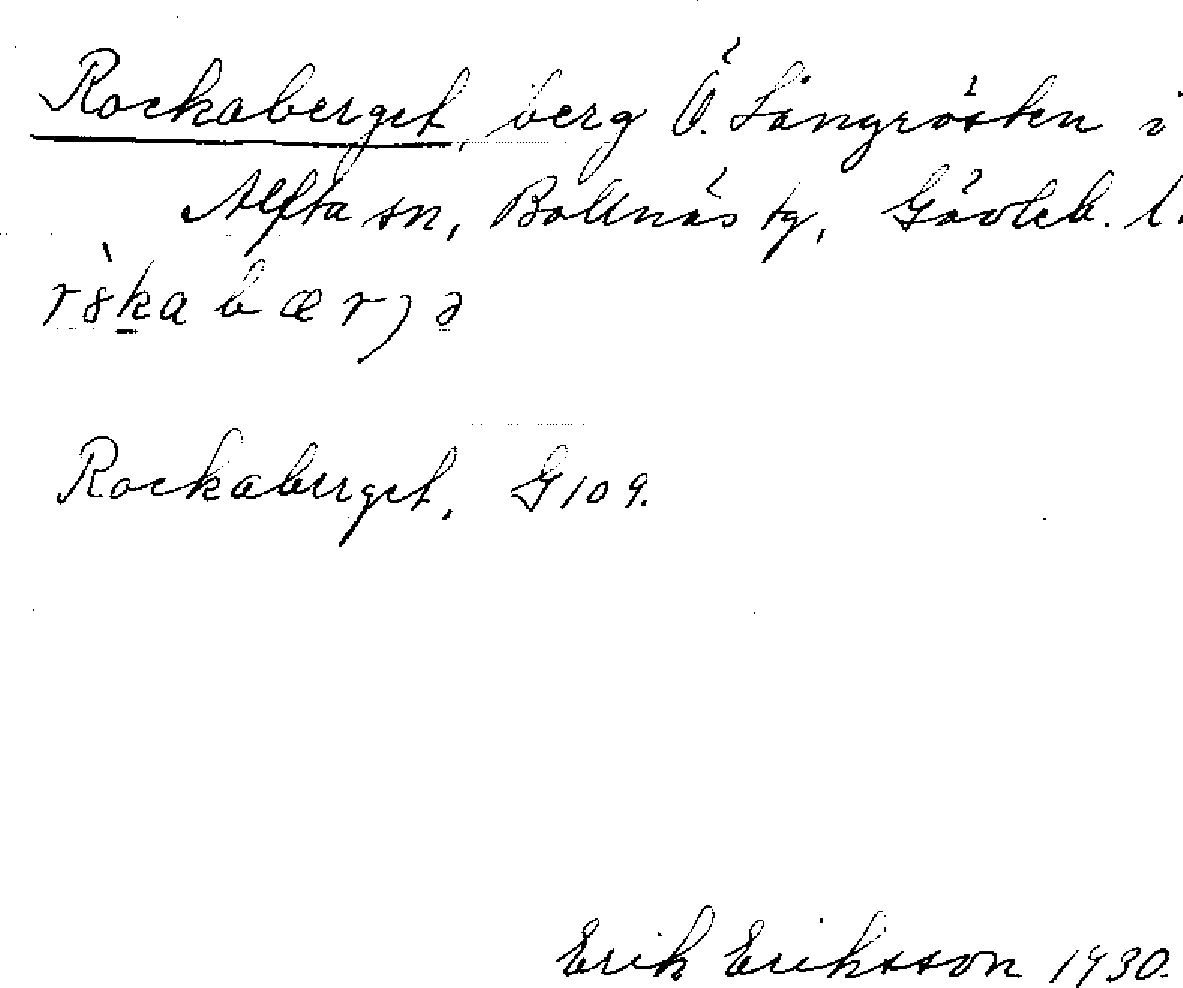 Rockaberget, berg Ö. Långrösten i
Alfta sn, Bollnäs tg, Gävleb. l.
Rockaberget, G109.
Erik Eriksson 1930.